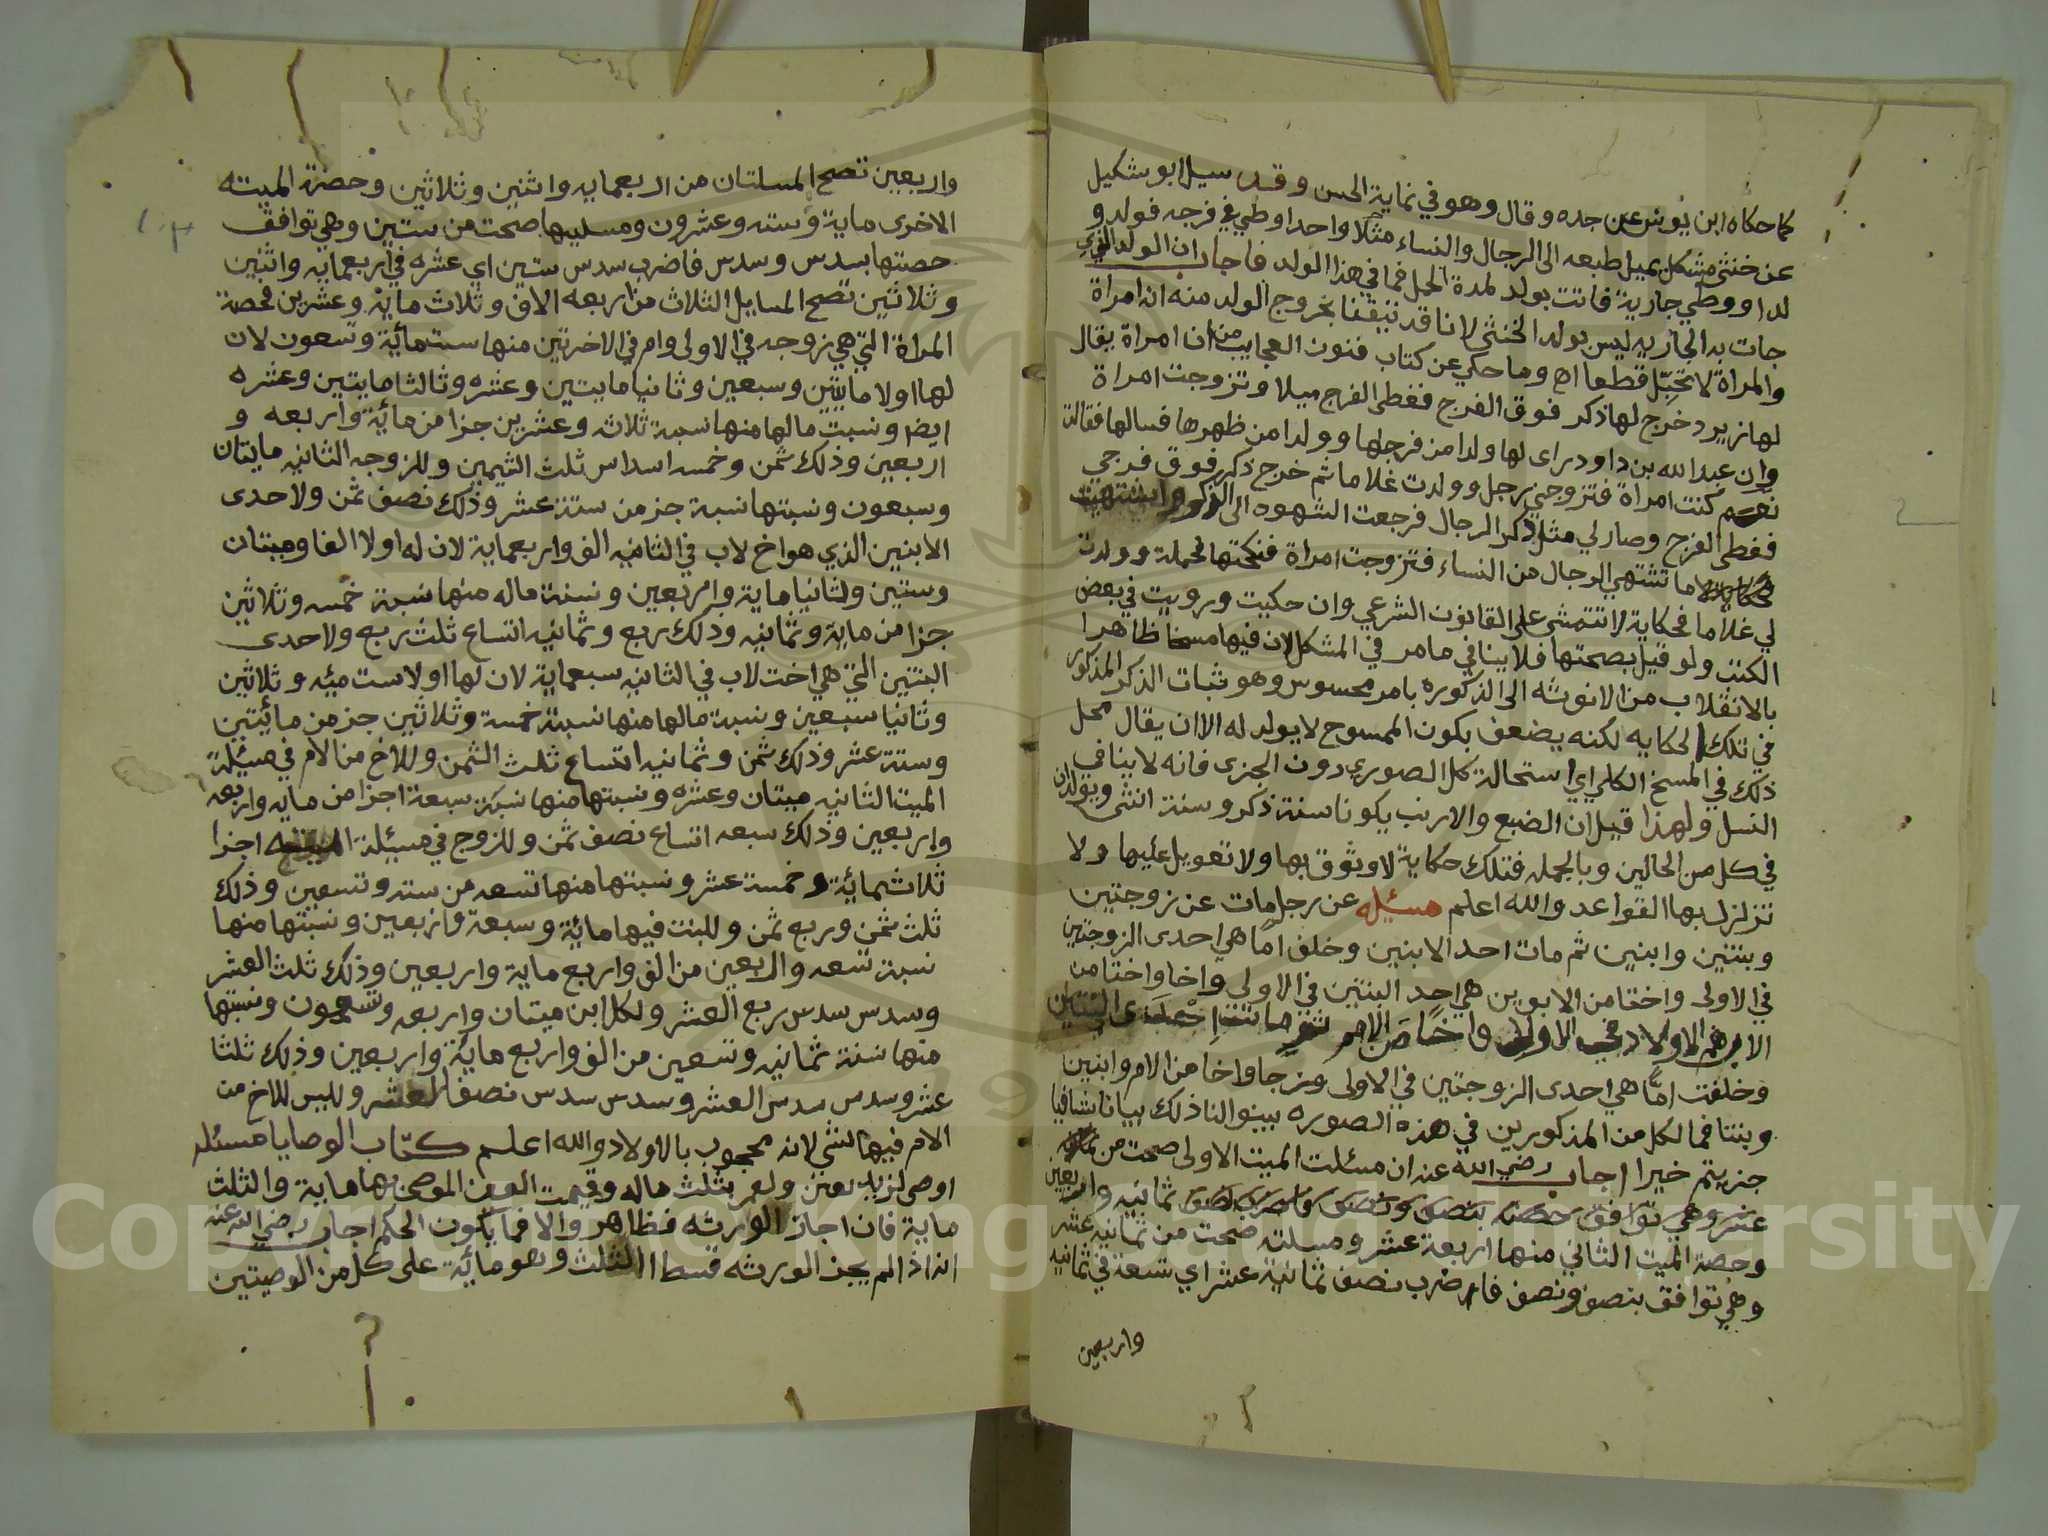 كما حكاه ابن يونس عن جده وقال وهو في نهاية الحسن وقد سيل ابو شكيل
عن خنثى مشكل يميل طبعه الى الرجال والنساء مثلا واحدا وطي في فرجه فولد و
لدا ووطي جارية فاتت بولد لمدة الحمل فما في هذا الولد فاجاب ان الولد الذي
جات به الجاريه ليس بولد الخنثى لانا قد تيقنا بخروج الولد منه انه امراة
والمراة لا تحبّل قطعا اه وما حكي عن كتاب فنون العجايب من ان امراة يقال
لها زيرد خرج لها ذكر فوق الفرج فغطى الفرج ميلا وتزوجت امراة
وان عبد الله بن داود راى لها ولدا من فرجها وولدا من ظهرها فسالها فقالت
نعم كنت امراة فتزوجني رجل وولدت غلاما ثم خرج ذكر فوق فرجي
فغطى الفرج وصار لي مثل ذكر الرجال فرجعت الشهوه الى الذكر واشتهيت
ما تشتهي الرجال من النساء فتزوجت امراة فنكحتها فحملت وولدت
لي غلاما فحكاية لا تتمشى على القانون الشرعي وان حكيت ورويت في بعض
الكتب ولو قيل بصحتها فلا ينافي ما مر في المشكل لان فيها مسخا ظاهرا
بالانقلاب من الانوثه الى الذكوره بامر محسوس وهو ثبات الذكر المذكور
في تلك الحكايه لكنه يضعف بكون الممسوح لا يولد له الا ان يقال محل
ذلك في المسخ الكلي اي استحالة كل الصوري دون الجزى فانه لا ينافي
النسل ولهذا قيل ان الضبع والارنب يكونا سنة ذكر وسنة انثى ويولدان
في كل من الحالين وبالجمله فتلك حكاية لا وثوق بها ولا تعويل عليها ولا
تزلزل بها القواعد والله اعلم مسئله عن رجل مات عن زوجتين
وبنتين وابنين ثم مات احد الابنين وخلف امّا هي احدى الزوجتين
في الاولى واختا من الابوين هي احد البنتين في الاولى واخا واختا من
الاب هم الاولاد في الاولى واخا من الام ثم ماتت احدى البنتان
وخلفت امًّا هي احدى الزوجتين في الاولى وزجا واخا من الام وابنين
وبنتا فما لكل من المذكورين في هذه الصوره بينوا لنا ذلك بيانا شافيا
جزيتم خيرا اجاب رضي الله عنه ان مسئلت الميت الاولى صحت من ثمانيه واربعين
وحصة الميت الثاني منها اربعة عشر ومسلته صحت من ثمانيه عشر
وهي توافق بنصف ونصف فاضرب نصف ثمانية عشر اي تسعة في ثمانيه
واربعين
واربعين تصح المسلتان من اربعمايه واثنين وثلاثين وحصة الميته
الاخرى ماية وسته وعشرون ومسليها صحت من ستين وهي توافق
حصتها بسدس وسدس فاضرب سدس ستين اي عشره في اربعمايه واثنين
وثلاثين تصح المسايل الثلاث من اربعه الاف وثلاث ماية وعشرين فحصة
المراة التي هي زوجه في الاولى وام في الاخرتين منها ستمائة وتسعون لان
لها اولا مايتين وسبعين وثانيا مايتين وعشره وثالثا مايتين وعشره
ايضا ونسبت مالها منها نسبة ثلاث وعشرين جزا من مائة واربعه و
اربعين وذلك ثمن وخمسه اسداس ثلث الثمين وللزوجه الثانيه مايتان
وسبعون ونسبتها نسبة جز من ستة عشر وذلك نصف ثمن ولاحدى
الابنين الذي هو اخ لاب في الثانيه الف واربعماية لان له اولا الفا وميتان
وستين وثانيا ماية واربعين ونسبة ماله منها نسبة خمسه وثلاثين
جزا من ماية وثمانيه وذلك ربع وثمانيه اتساع ثلث ربع ولاحدى
البنتين التي هي اخت لاب في الثانيه سبعماية لان لها اولا ست ميئه وثلاثين
وثانيا سبعين ونسبة مالها منها نسبة خمسة وثلاثين جز من مائيتين
وستة عشر وذلك ثمن وثمانيه اتساع ثلث الثمن وللاخ من الام في مسيلة
الميت الثانيه ميتان وعشره ونسبتها منها نسبة سبعة اجزا من مايه واربعه
واربعين وذلك سبعه اتساع نصف ثمن وللزوج في مسيلة الميته اجزا
ثلاثمائة وخمسة عشر ونسبتها منها تسعه من سته وتسعين وذلك
ثلث ثمن وربع ثمن وللبنت فيها مائة وسبعة واربعين ونسبتها منها
نسبة تسعه واربعين من الف واربع ماية واربعين وذلك ثلث العشر
وسدس سدس ربع العشر ولكل ابن ميتان واربعه وتسعون ونسبتها
منها نسبة ثمانيه وتسعين من الف واربع ماية واربعين وذلك ثلثا
عشر وسدس سدس العشر وسدس سدس نصف العشر وليس للاخ من
الام فيها شي لانه محجوب بالاولاد والله اعلم كتاب الوصايا مسئله
اوصى لزيد بعين ولعمر بثلث ماله وقيمت العين الموصى بها ماية والثلث
ماية فان اجاز الورثه فظاهر والا فما يكون الحكم اجاب رضي الله عنه
انه اذا لم يجز الورثه قسط الثلث وهو مائة على كل من الوصيتين